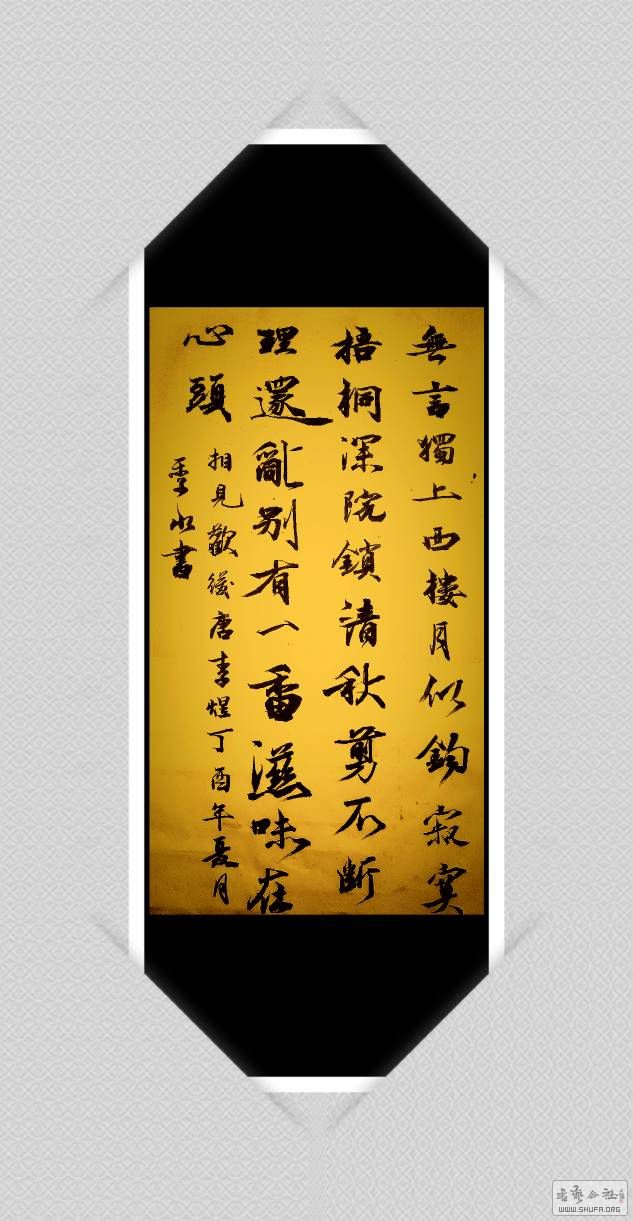 無言獨上西樓月似鈎寂寞
梧桐深院鎖清秋剪不斷
理還亂别有一番滋味在
心頭
相見歡後唐李煜丁酉年夏月
季水書
書藝公社
WWW.SHUFA.ORG